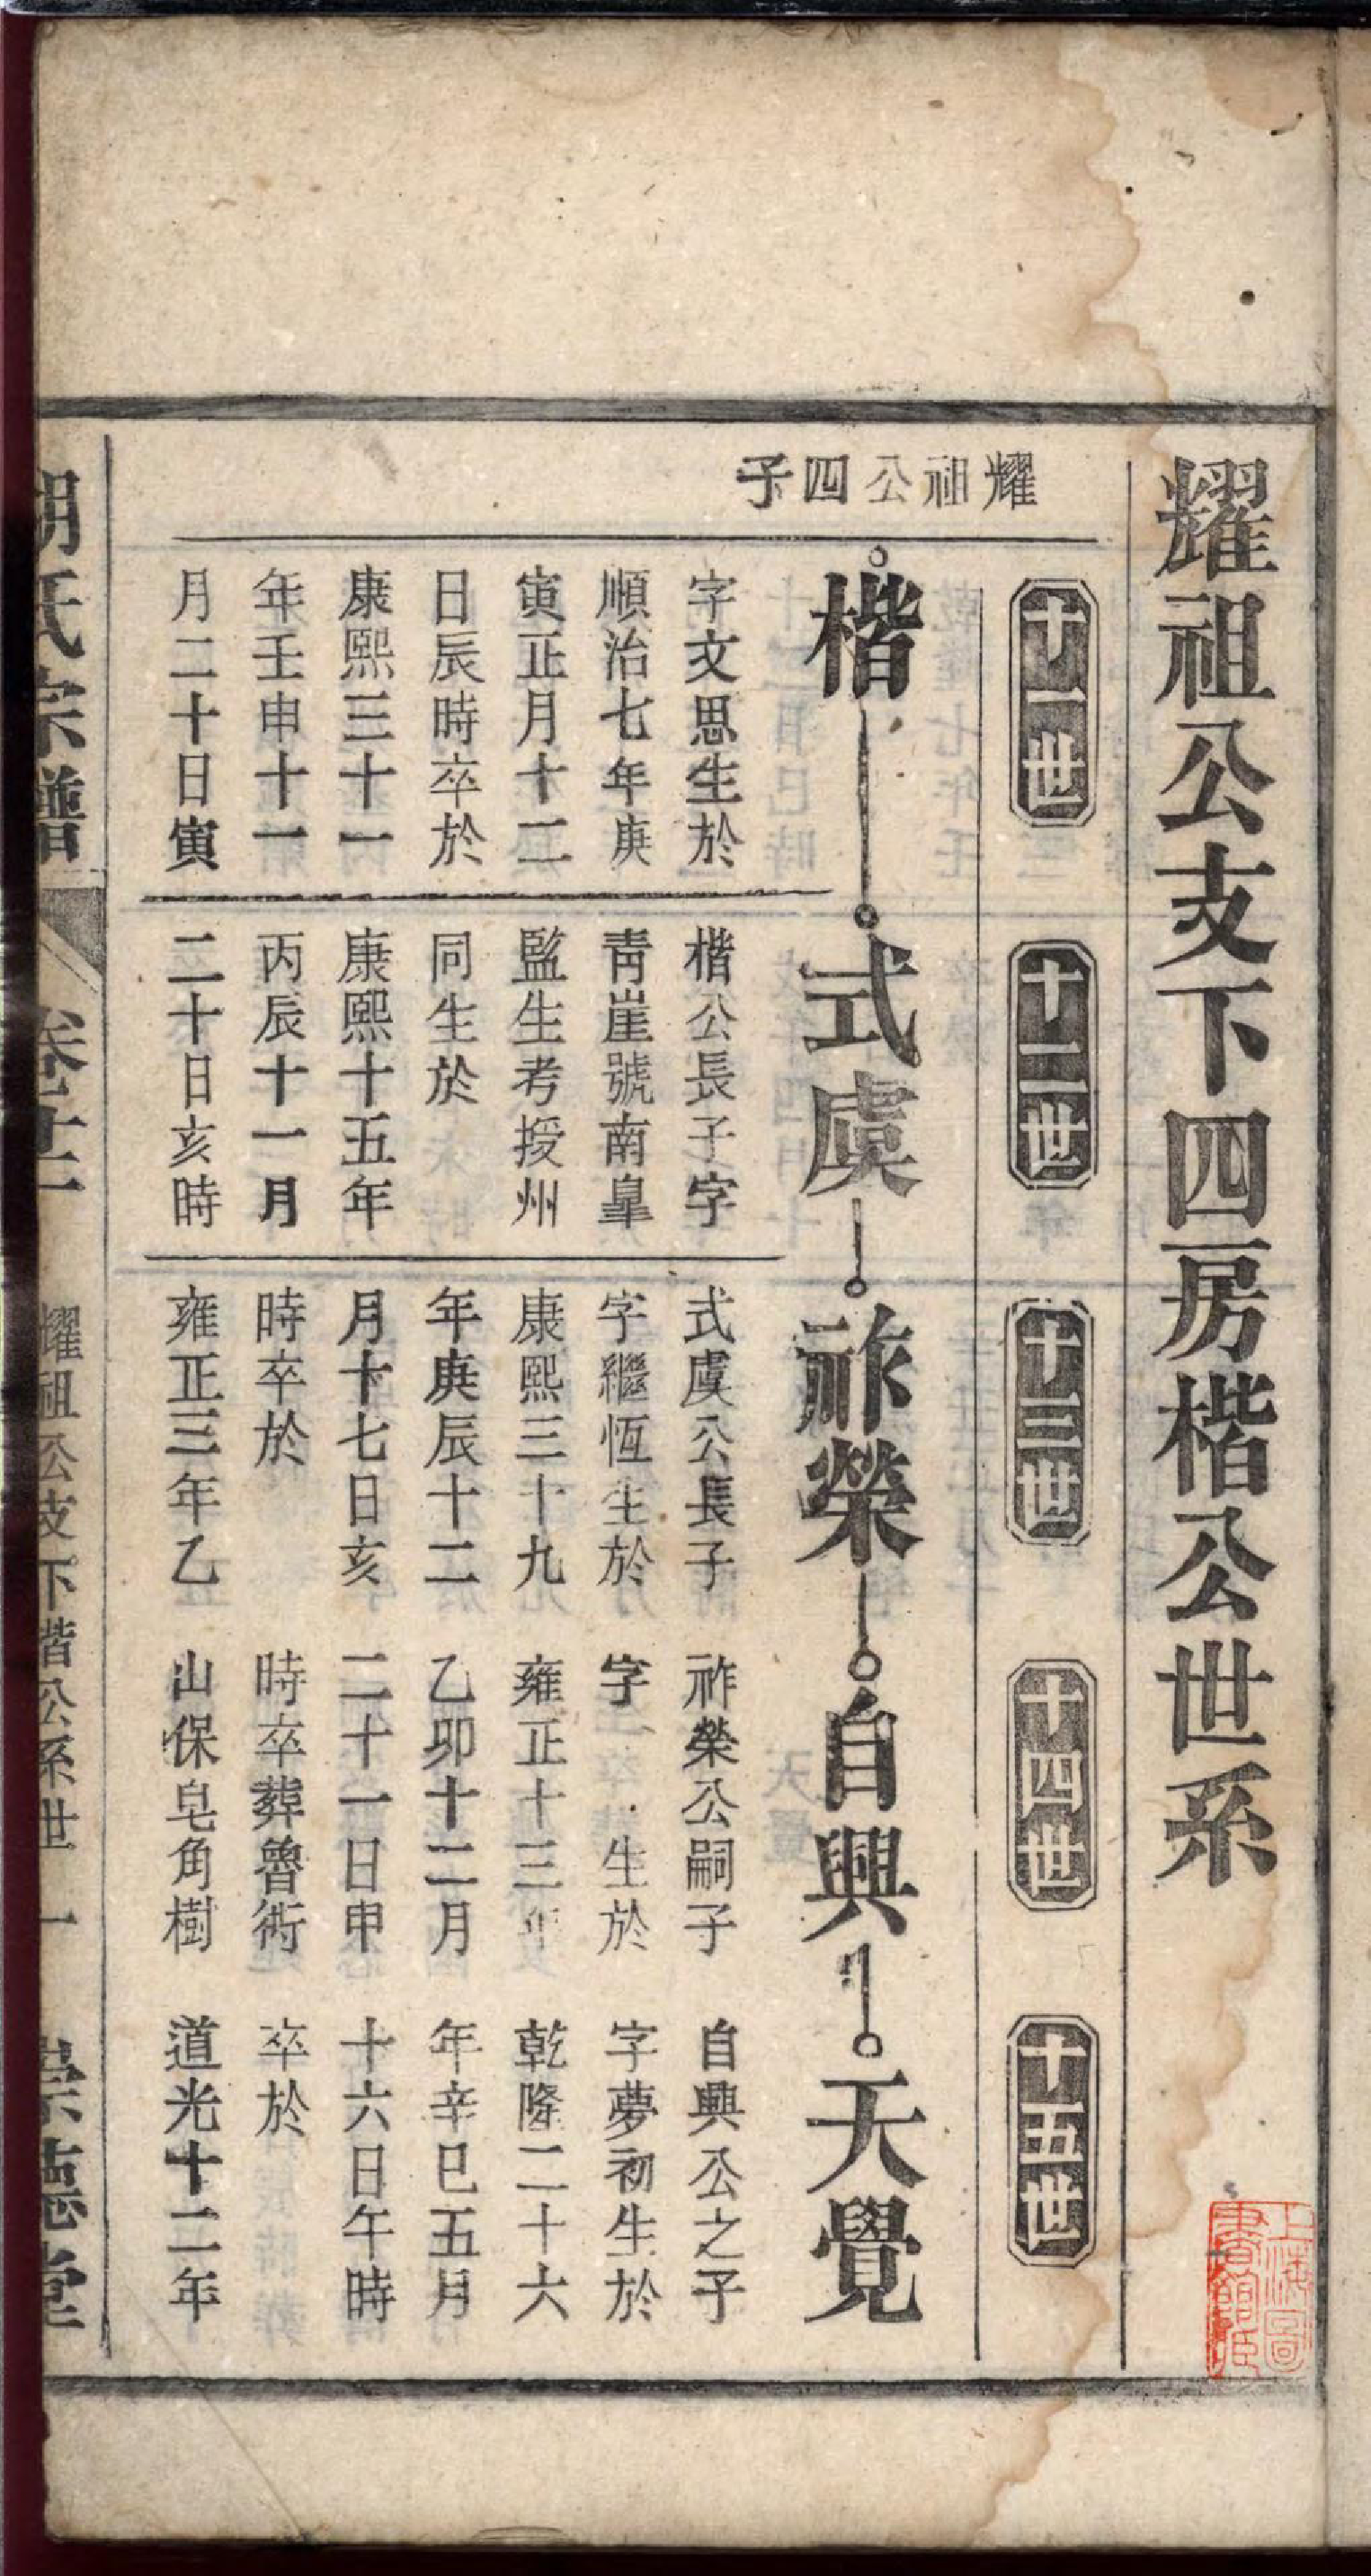 耀祖公支下四房楷公世系
十一世
十二世
十三世
十四世
十五世
耀祖公四子
楷
式虞
祚榮
自興
天覺
字文思生於
順治七年庚
寅正月十二
日辰時卒於
康熙三十一
年壬申十一
月二十日寅
楷公長子字
靑崖號南皐
監生考授州
同生於
康熙十五年
丙辰十一月
二十日亥時
式虞公長子
字繼恆生於
康熙三十九
年庚辰十二
月十七日亥
時卒於
雍正三年乙
祚榮公嗣子
字 生於
雍正十三年
乙卯十二月
二十一日申
時卒葬魯術
山保皂角樹
自興公之子
字夢初生於
乾隆二十六
年辛巳五月
十六日午時
卒於
道光十二年
胡氏宗譜
卷十二
耀祖公支下楷公系世
一
崇德堂
上海圖書館藏